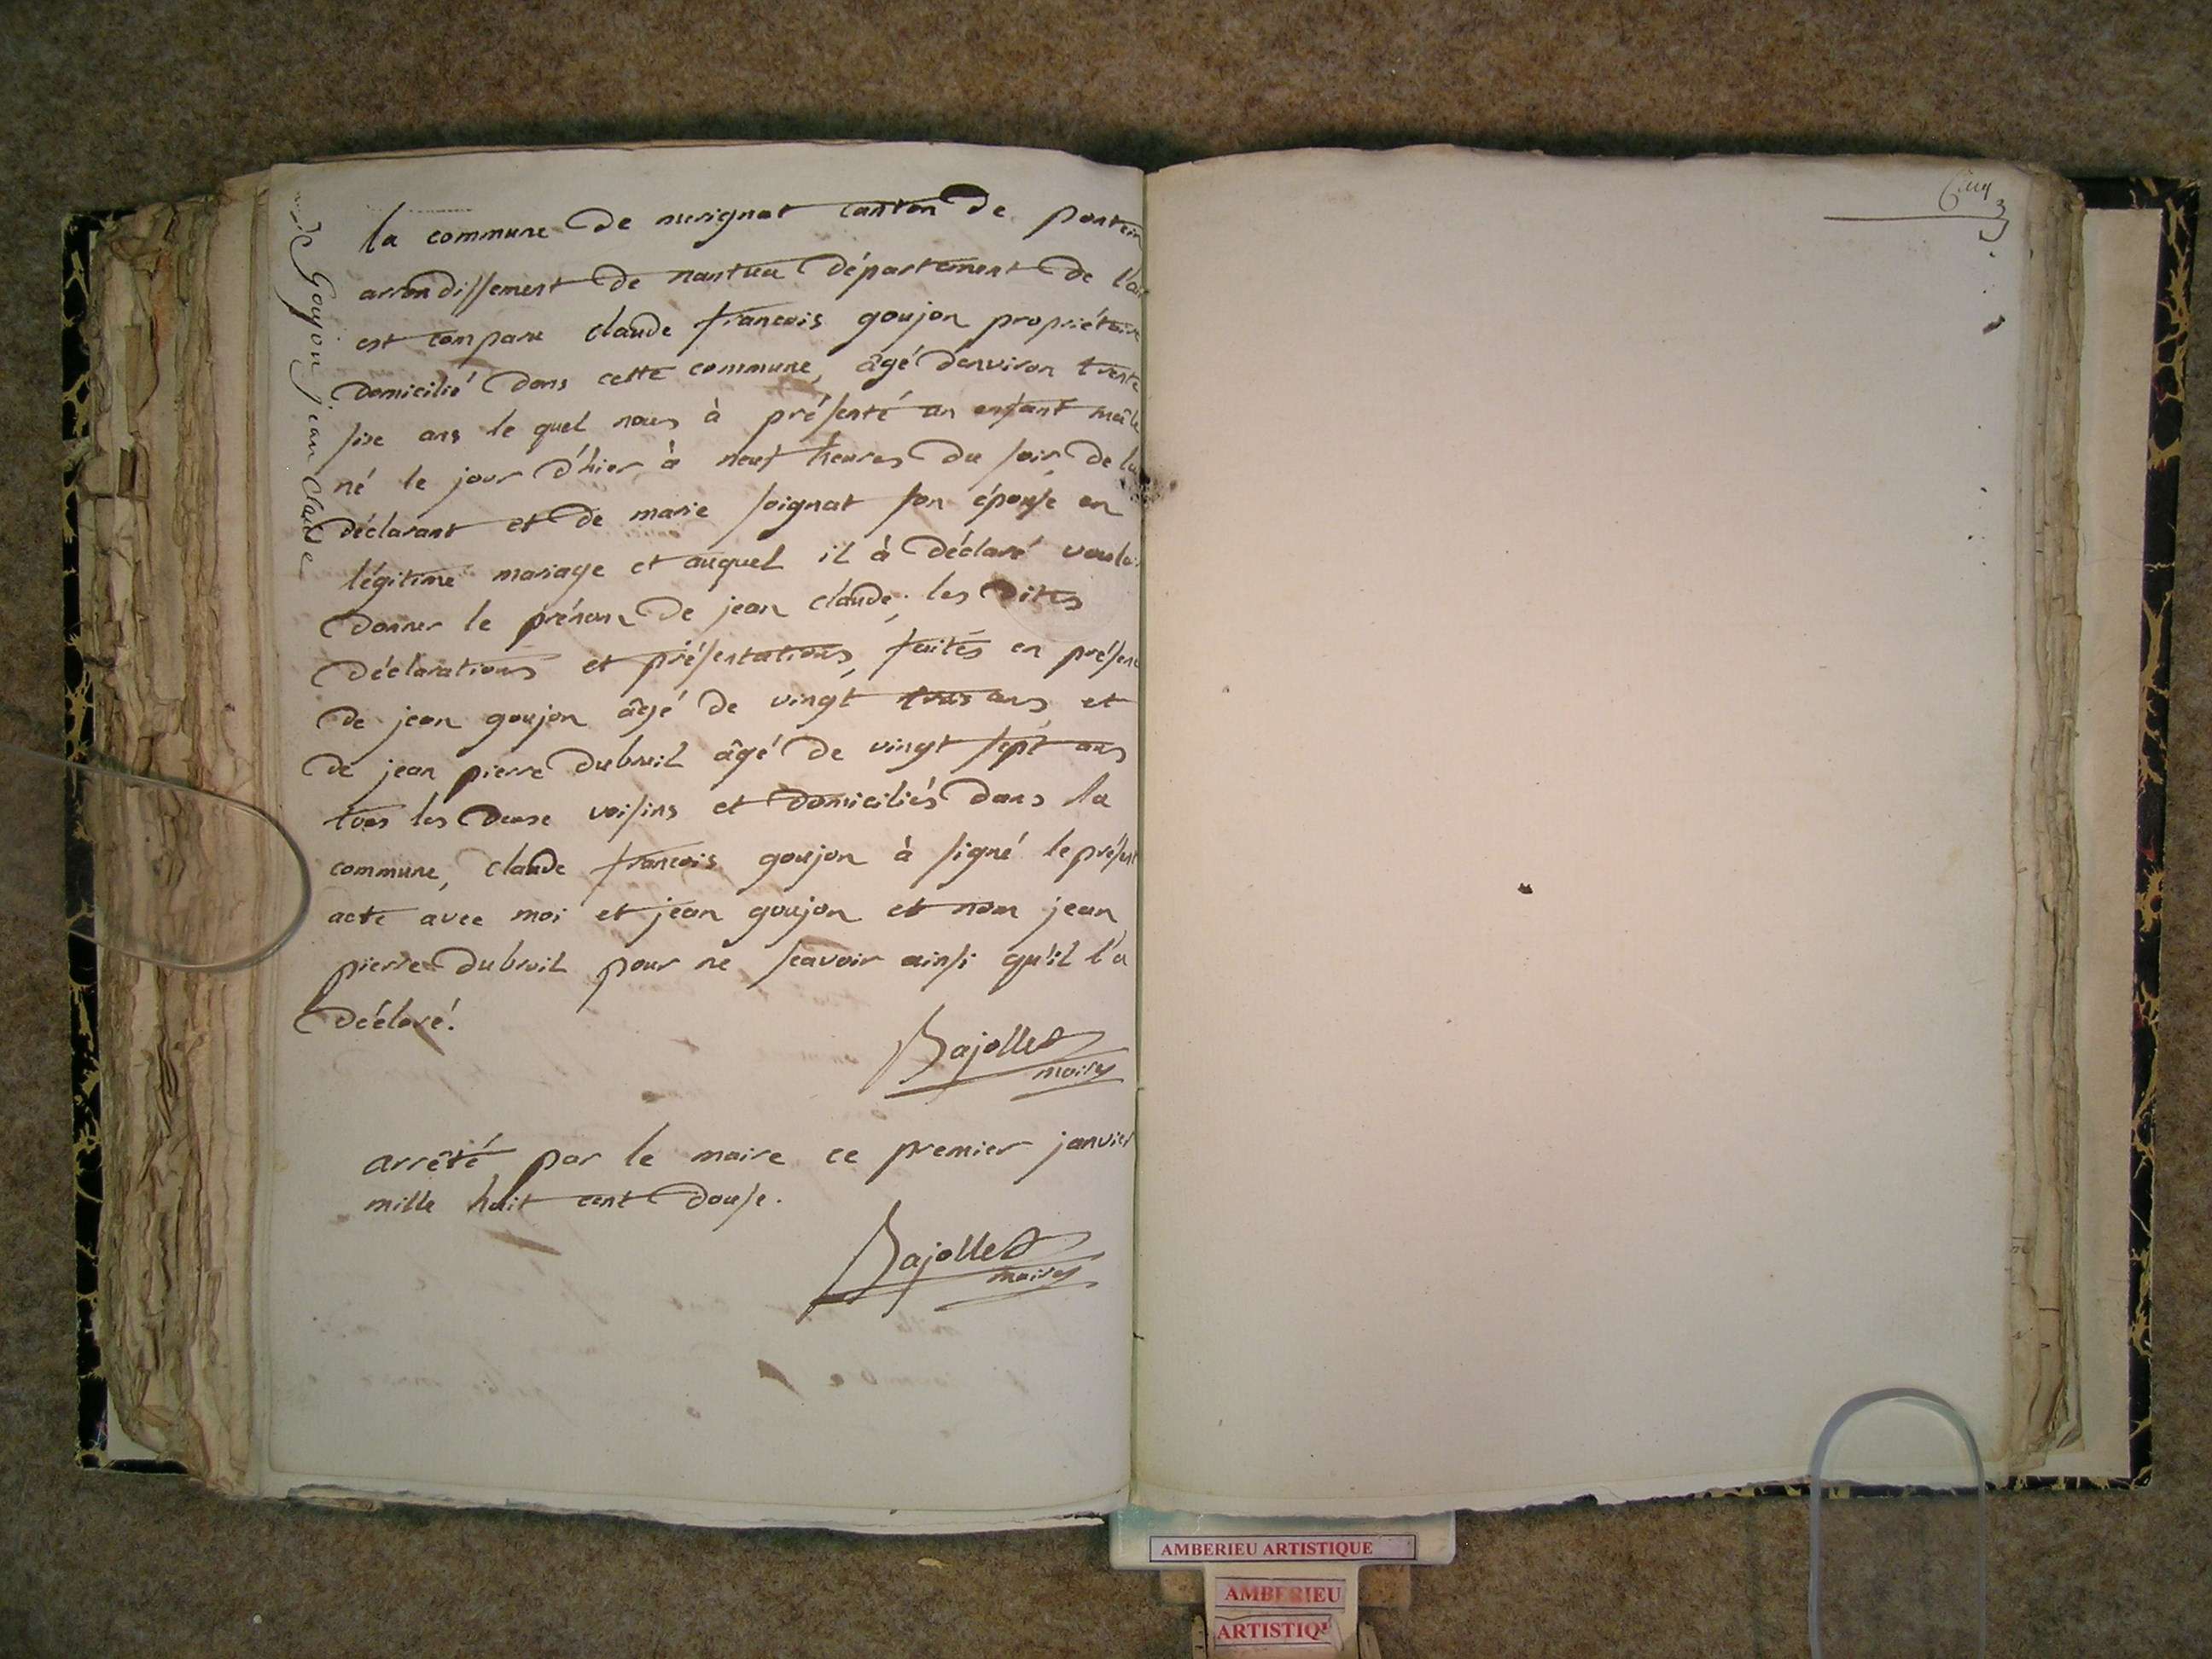 la commune de merignat canton de poncin
arrondissement de nantua département de l'ain
est comparu claude francois goujon propriétaire
domicilié dans cette commune, âgé d'environ trente
six ans le quel nous à présenté un enfant mâle
né le jour d'hier à neuf heures du soir, de lui
déclarant et de marie soignat son épouse en
légitime mariage et auquel il à déclaré vouloi
donner le prénom de jean claude, les dites
déclarations et présentations, faites en présen
de jean goujon âgé de vingt trois ans, et
de jean pierre dubreuil âgé de vingt sept ans
tous les deux voisins et domiciliés dans la
commune, claude francois goujon à signé le présent
acte avec moi et jean goujon et non jean
pierre dubreuil pour ne scavoir ainsi qu'il l'a
déclaré.
Bajollet
maire
arrêté par le maire ce premier janvier
mille huit cent douse.
Bajollet
maire
Goujon jean Claude
AMBERIEU ARTISTIQUE
AMBERIEU
ARTISTIQU